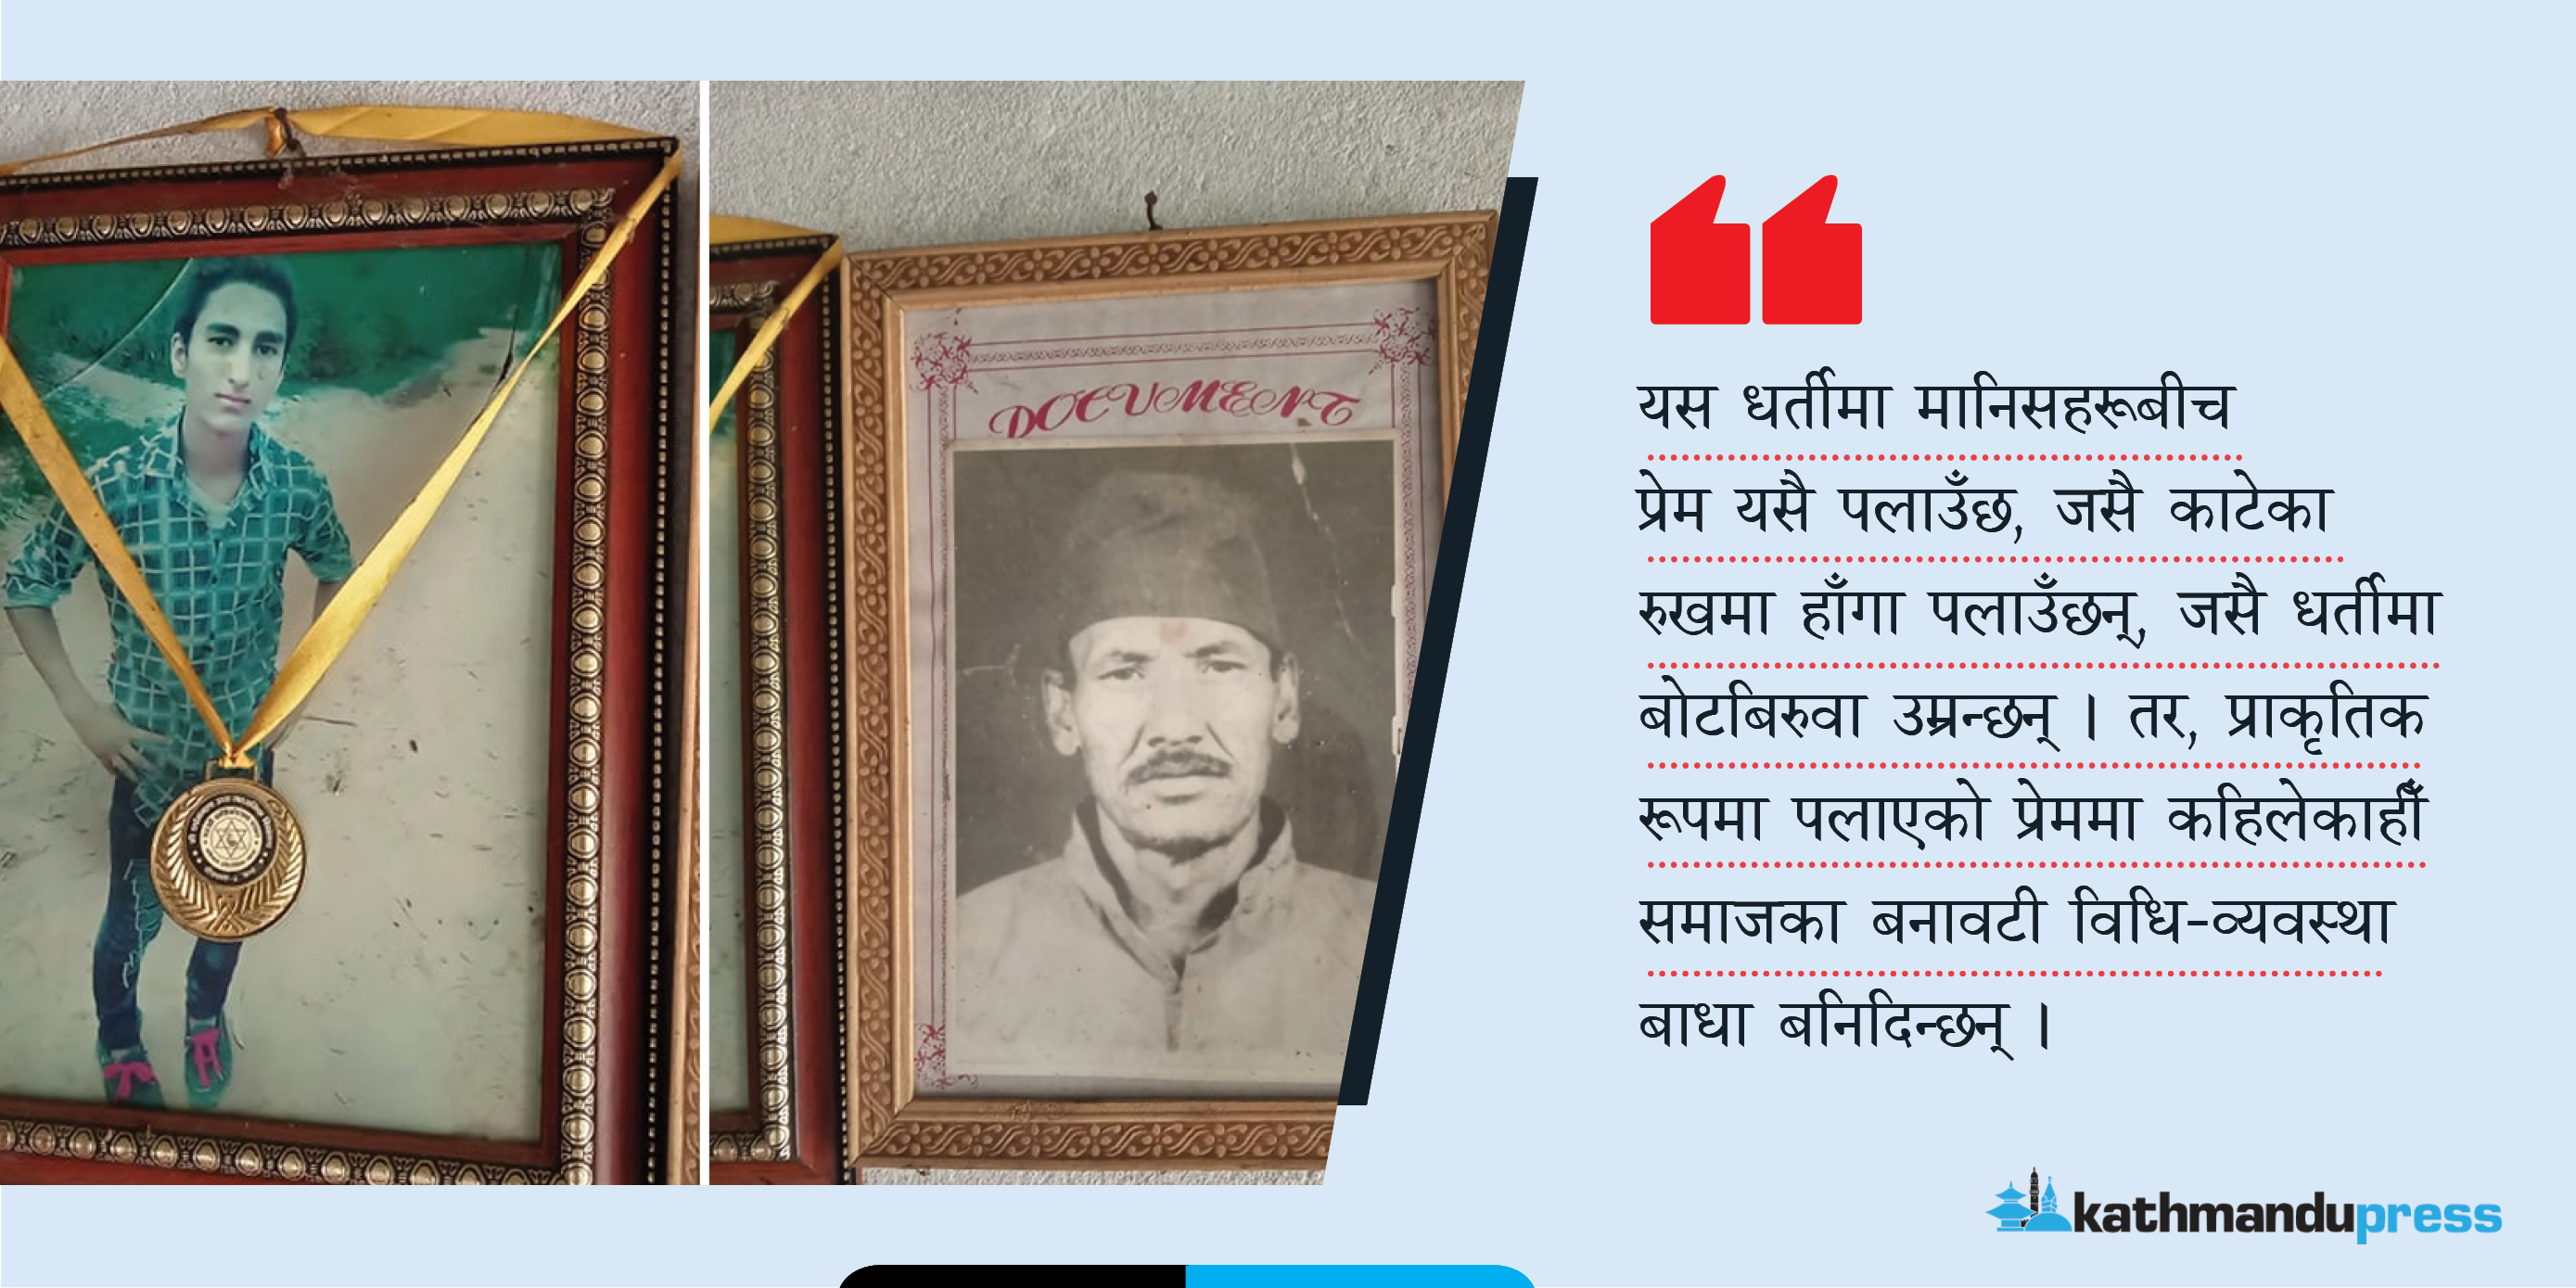 DOCUMENT
यस धर्तीमा मानिसहरूबीच
प्रेम यसै पलाउँछ, जसै काटेका
रुखमा हाँगा पलाउँछन्, जसै धर्तीमा
बोटबिरुवा उम्रन्छन् । तर, प्राकृतिक
रूपमा पलाएको प्रेममा कहिलेकाहीँ
समाजका बनावटी विधि-व्यवस्था
बाधा बनिदिन्छन् ।
kathmandupress